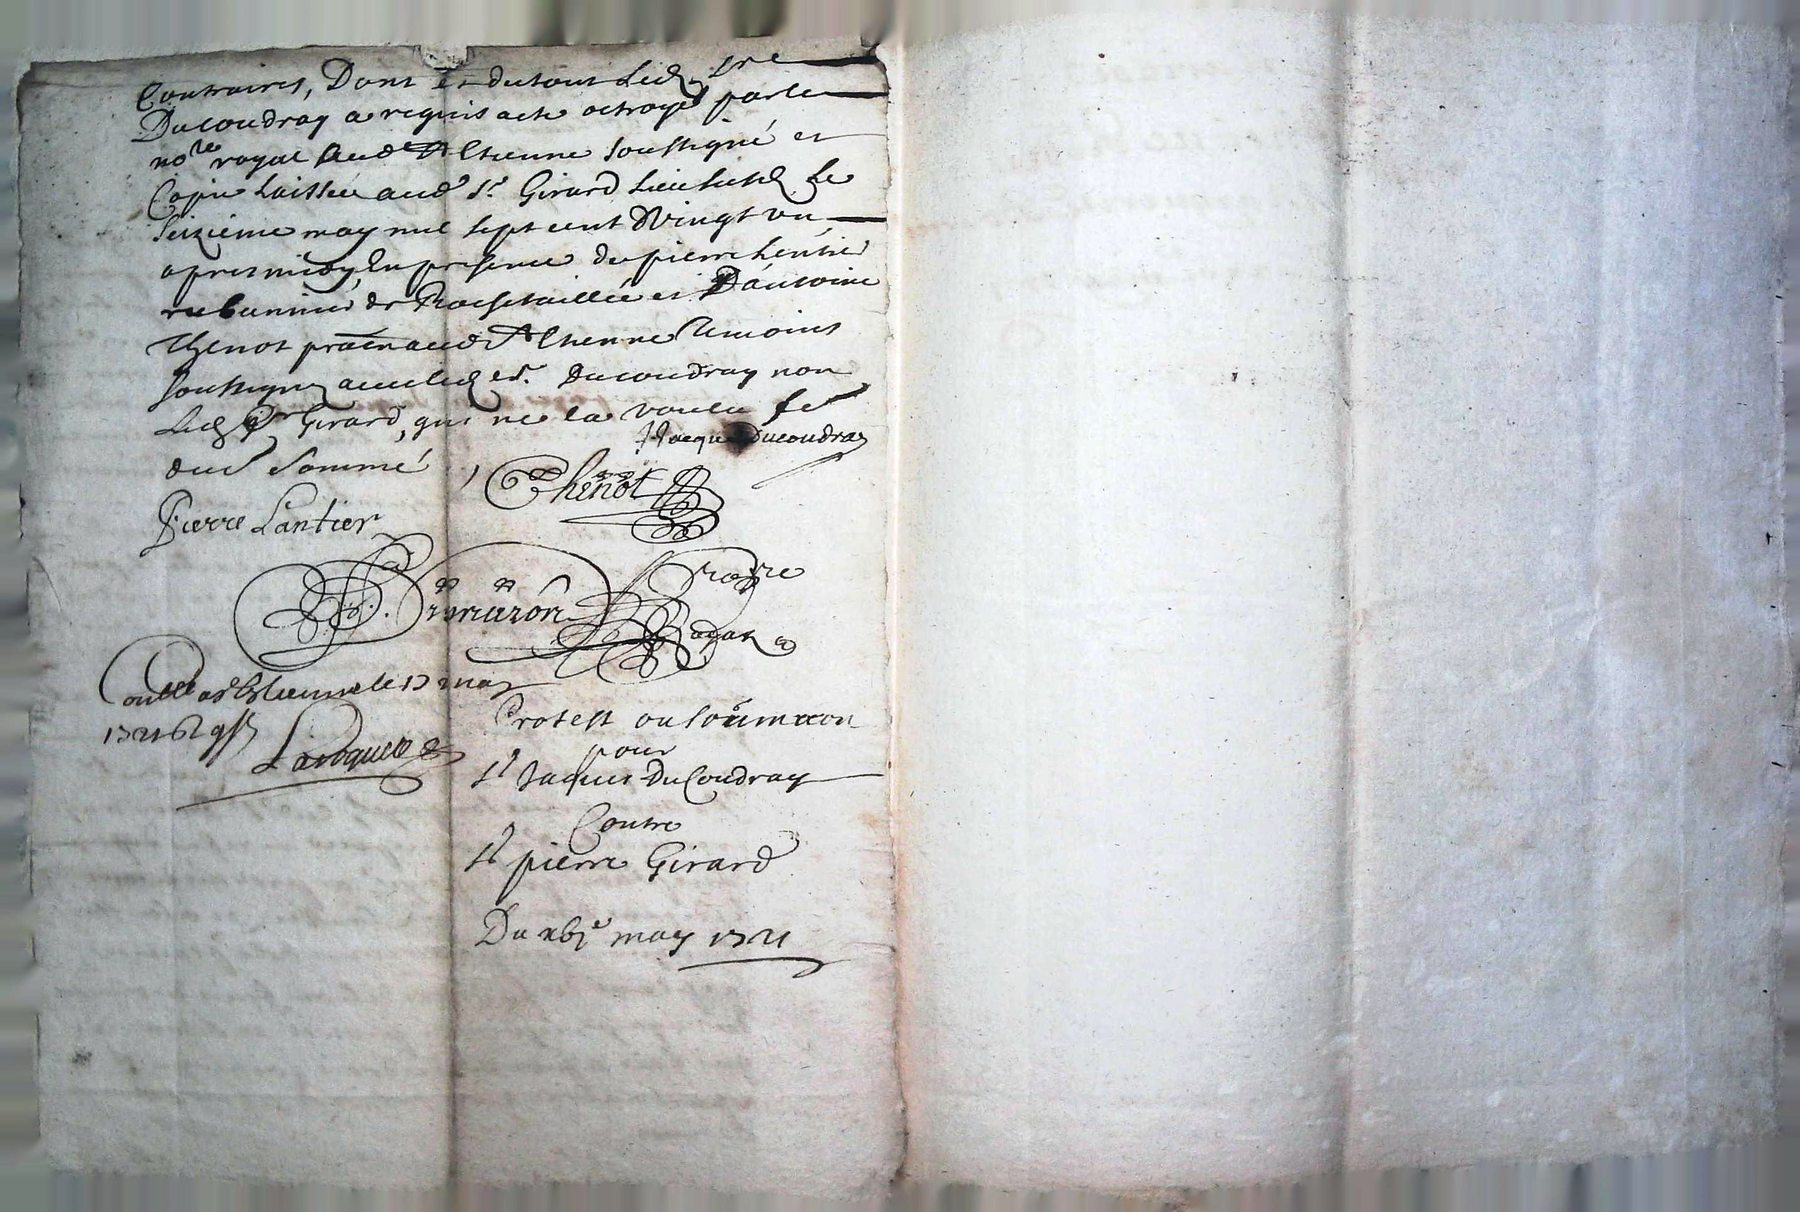 Contraires, Dont et dutout led. sre
Ducoudray a requis acte octroyé par le
nore royal aud. St Etienne soussigné et
Copie laissée aud. sr. Girard le
seizieme may mil sept cent vingt un
apres midy, En presence de pierre Lentier
rubannier de Rochetaillée et D'antoine
Thenot praticien aud. St Etienne Temoins
soussignez avec led. sr. Ducoudray non
led. sr Girard, qui ne la voulu
sommé
Jacque Ducoudray
Thenot
Pierre Lantier
no.re
Royal
Conlle a St Estienne le 17 may
1721
Laroque
Protest ou sommaon
pour
Sr Jaques DuCoudray
Contre
Sr pierre Girard
Du xvie may 1721